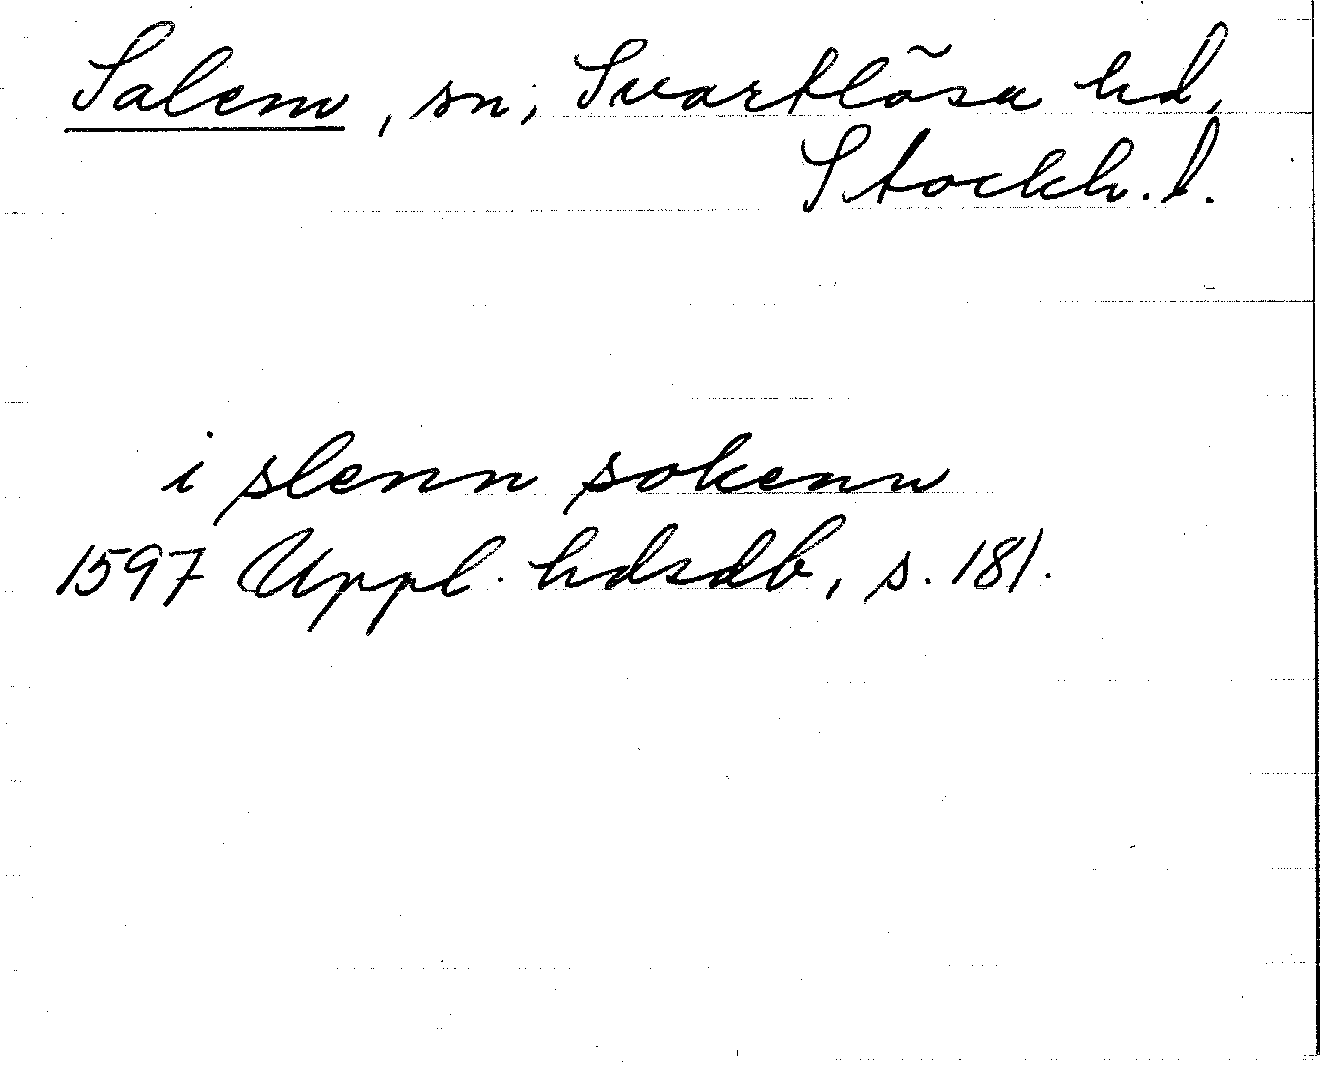 Salem, sn, Svartlösa hd,
Stockh. l.
i slenn sokenn
1597 Uppl. hdsdb, s. 181.